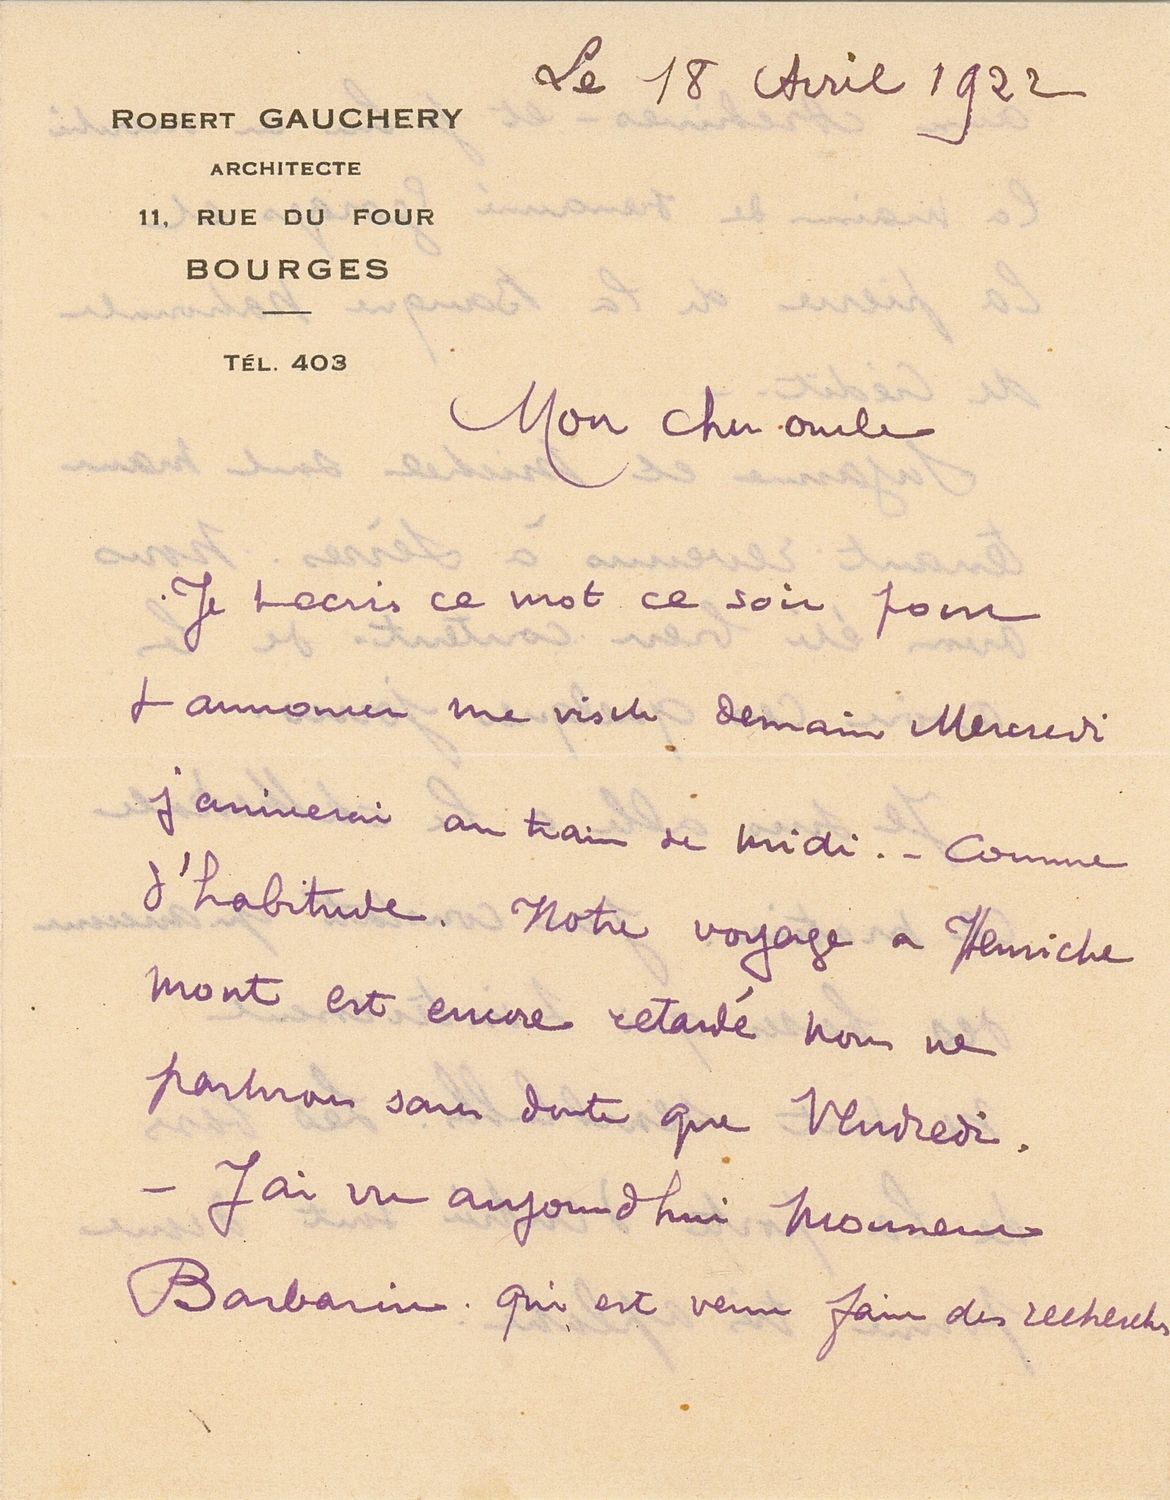 Le 18 Avril 1922
ROBERT GAUCHERY
ARCHITECTE
11, RUE DU FOUR
BOURGES
TÉL. 403
Mon cher oncle
Je t ecris ce mot ce soir pour
t annoncer ma visite demain Mercredi
j'arriverai au train de midi. - Comme
d'habitude. Notre voyage a Henriche
mont est encore retardé nous ne
partirons sans doute que Vendredi.
- J'ai vu aujourd hui monsieur
Barbarin. qui est venu faire des recherches